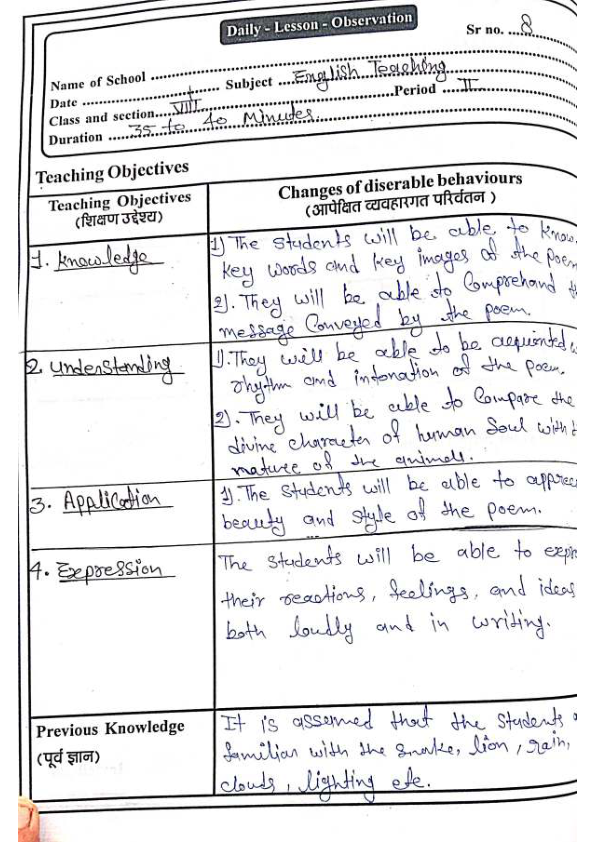 Daily - Lesson - Observation
Sr no. ....8
Name of School ..............
Date .............. Subject ...English Teaching
Class and section....VIII..............Period ...II....
Duration ...35 to 40 Minutes..............
Teaching Objectives
Teaching Objectives
(शिक्षण उद्देश्य)
Changes of diserable behaviours
(आपेक्षित व्यवहारगत परिर्वतन )
1. Knowledge
1) The Students will be able to Know
key words and key images of the Poem
2). They will be able to Comprehand
message Conveyed by the poem.
2. Understanding
1). They will be able to be acquionted
rhythm and intonation of the Poem.
2). They will be able to Compare the
divine character of human Soul with
nature of the animals.
3. Application
1). The Students will be able to
beauty and style of the poem.
4. Expression
The Students will be able to
their reactions, feelings, and ideas
both loudly and in writing.
Previous Knowledge
(पूर्व ज्ञान)
It is assumed that the Students
familian with the Snake, lion, rain,
clouds, lighting etc.